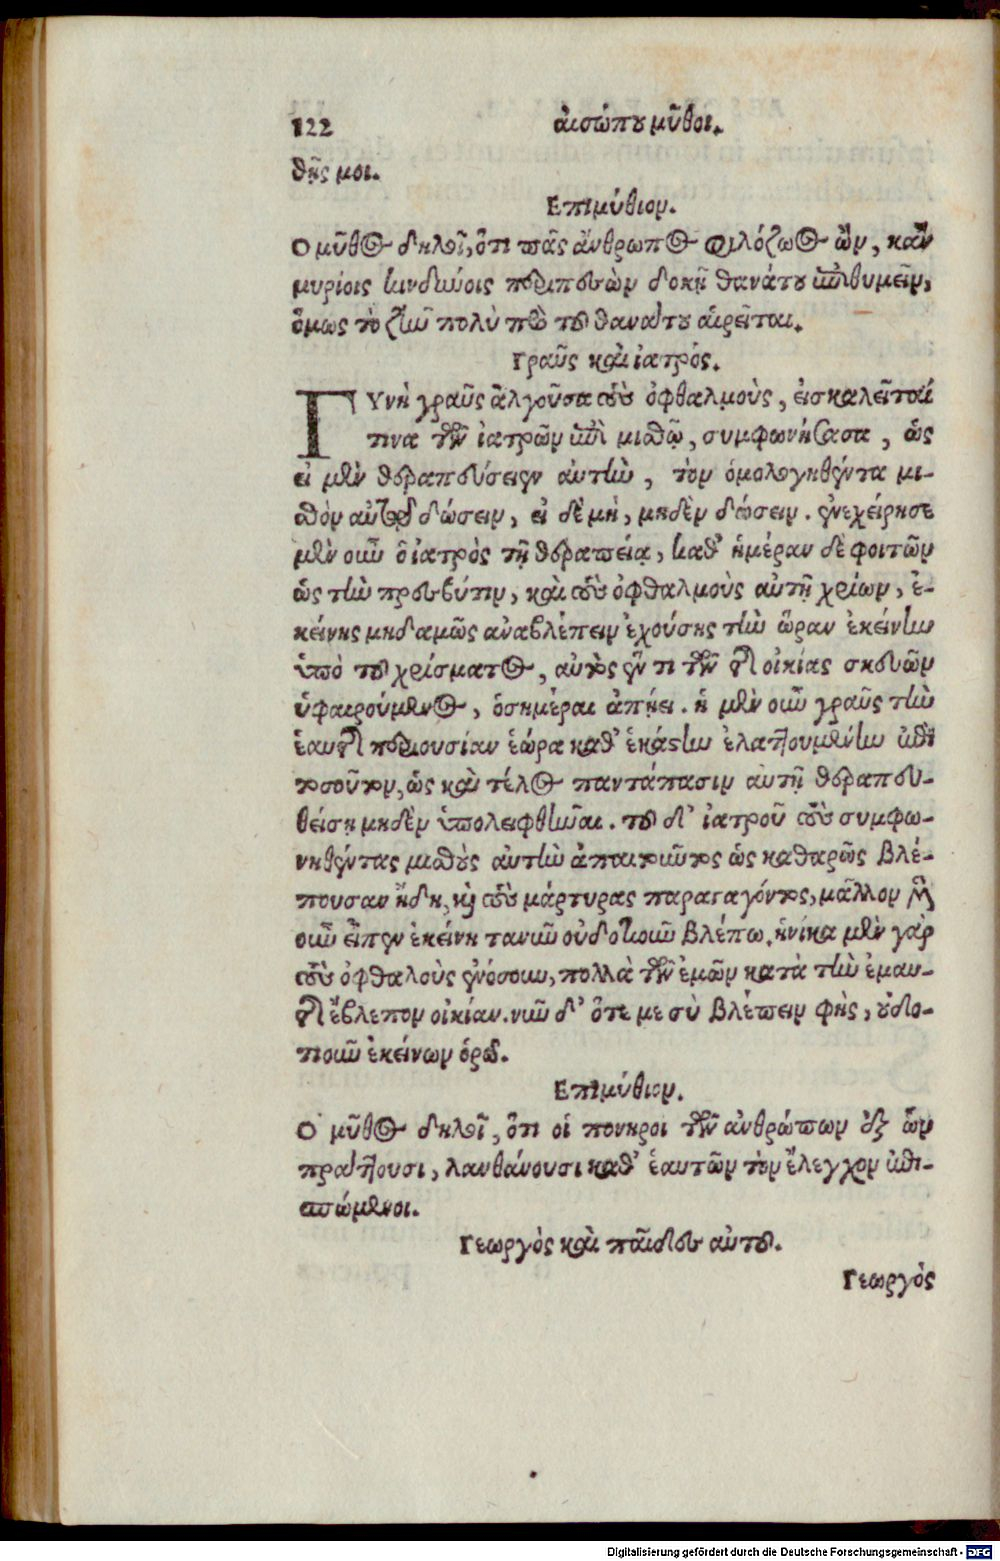 122 αἰσώπου μῦθοι.
θῇς μοι.
Επιμύθιον.
Ο μῦθος δηλοῖ, ὅτι πᾶς ἄνθρωπος φιλόζωος ὢν, κἂν
μυρίοις κινδύνοις περιπεσὼν δοκῇ θανάτου ἐπιθυμεῖν,
ὅμως τὸ ζῆν πολὺ πρὸ τοῦ θανάτου αἱρεῖται.
Γραῦς καὶ ἰατρός.
ΓΥνὴ γραῦς ἀλγοῦσα τοὺς ὀφθαλμοὺς, εἰσκαλεῖταί
τινα τῶν ἰατρῶν ἐπὶ μισθῷ, συμφωνήσασα, ὡς
εἰ μὲν θεραπεύσειεν αὐτὴν, τὸν ὁμολογηθέντα μι-
σθὸν αὐτῷ δώσειν, εἰ δὲ μὴ, μηδὲν δώσειν. ἐνεχείρησε
μὲν οὖν ὁ ἰατρὸς τῇ θεραπείᾳ, καθ' ἡμέραν δὲ φοιτῶν
ὡς τὴν πρεσβύτιν, καὶ τοὺς ὀφθαλμοὺς αὐτῇ χρίων, ἐ-
κείνης μηδαμῶς ἀναβλέπειν ἐχούσης τὴν ὥραν ἐκείνην
ὑπὸ τοῦ χρίσματος, αὐτὸς ἕν τι τῶν τῆς οἰκίας σκευῶν
ὑφαιρούμενος, ὁσημέραι ἀπῄει. ἡ μὲν οὖν γραῦς τὴν
ἑαυτῆς περιουσίαν ἑώρα καθ' ἑκάστην ἐλαττουμένην ἐπὶ
τοσοῦτον, ὡς καὶ τέλος παντάπασιν αὐτῇ θεραπευ-
θείσῃ μηδὲν ὑπολειφθῆναι. τοῦ δ' ἰατροῦ τοὺς συμφω-
νηθέντας μισθοὺς αὐτὴν ἀπαιτοῦντος ὡς καθαρῶς βλέ-
πουσαν ἤδη, καὶ τοὺς μάρτυρας παραγαγόντος, μᾶλλον μὲν
οὖν εἶπεν ἐκείνη τανῦν οὐδοτιοῦν βλέπω. ἡνίκα μὲν γὰρ
τοὺς ὀφθαλοὺς ἐνόσουν, πολλὰ τῶν ἐμῶν κατὰ τὴν ἐμαυ-
τῆς ἔβλεπον οἰκίαν. νῦν δ' ὅτε με σὺ βλέπειν φῂς, οὐδο-
τιοῦν ἐκείνων ὁρῶ.
Επιμύθιον.
Ο μῦθος δηλοῖ, ὅτι οἱ πονηροι τῶν ἀνθρώπων ἐξ ὧν
πράττουσι, λανθάνουσι καθ' ἑαυτῶν τὸν ἔλεγχον ἐπι-
σπώμενοι.
Γεωργὸς καὶ παῖδες αὐτοῦ.
Γεωργὸς
Digitalisierung gefördert durch die Deutsche Forschungsgemeinschaft - DFG